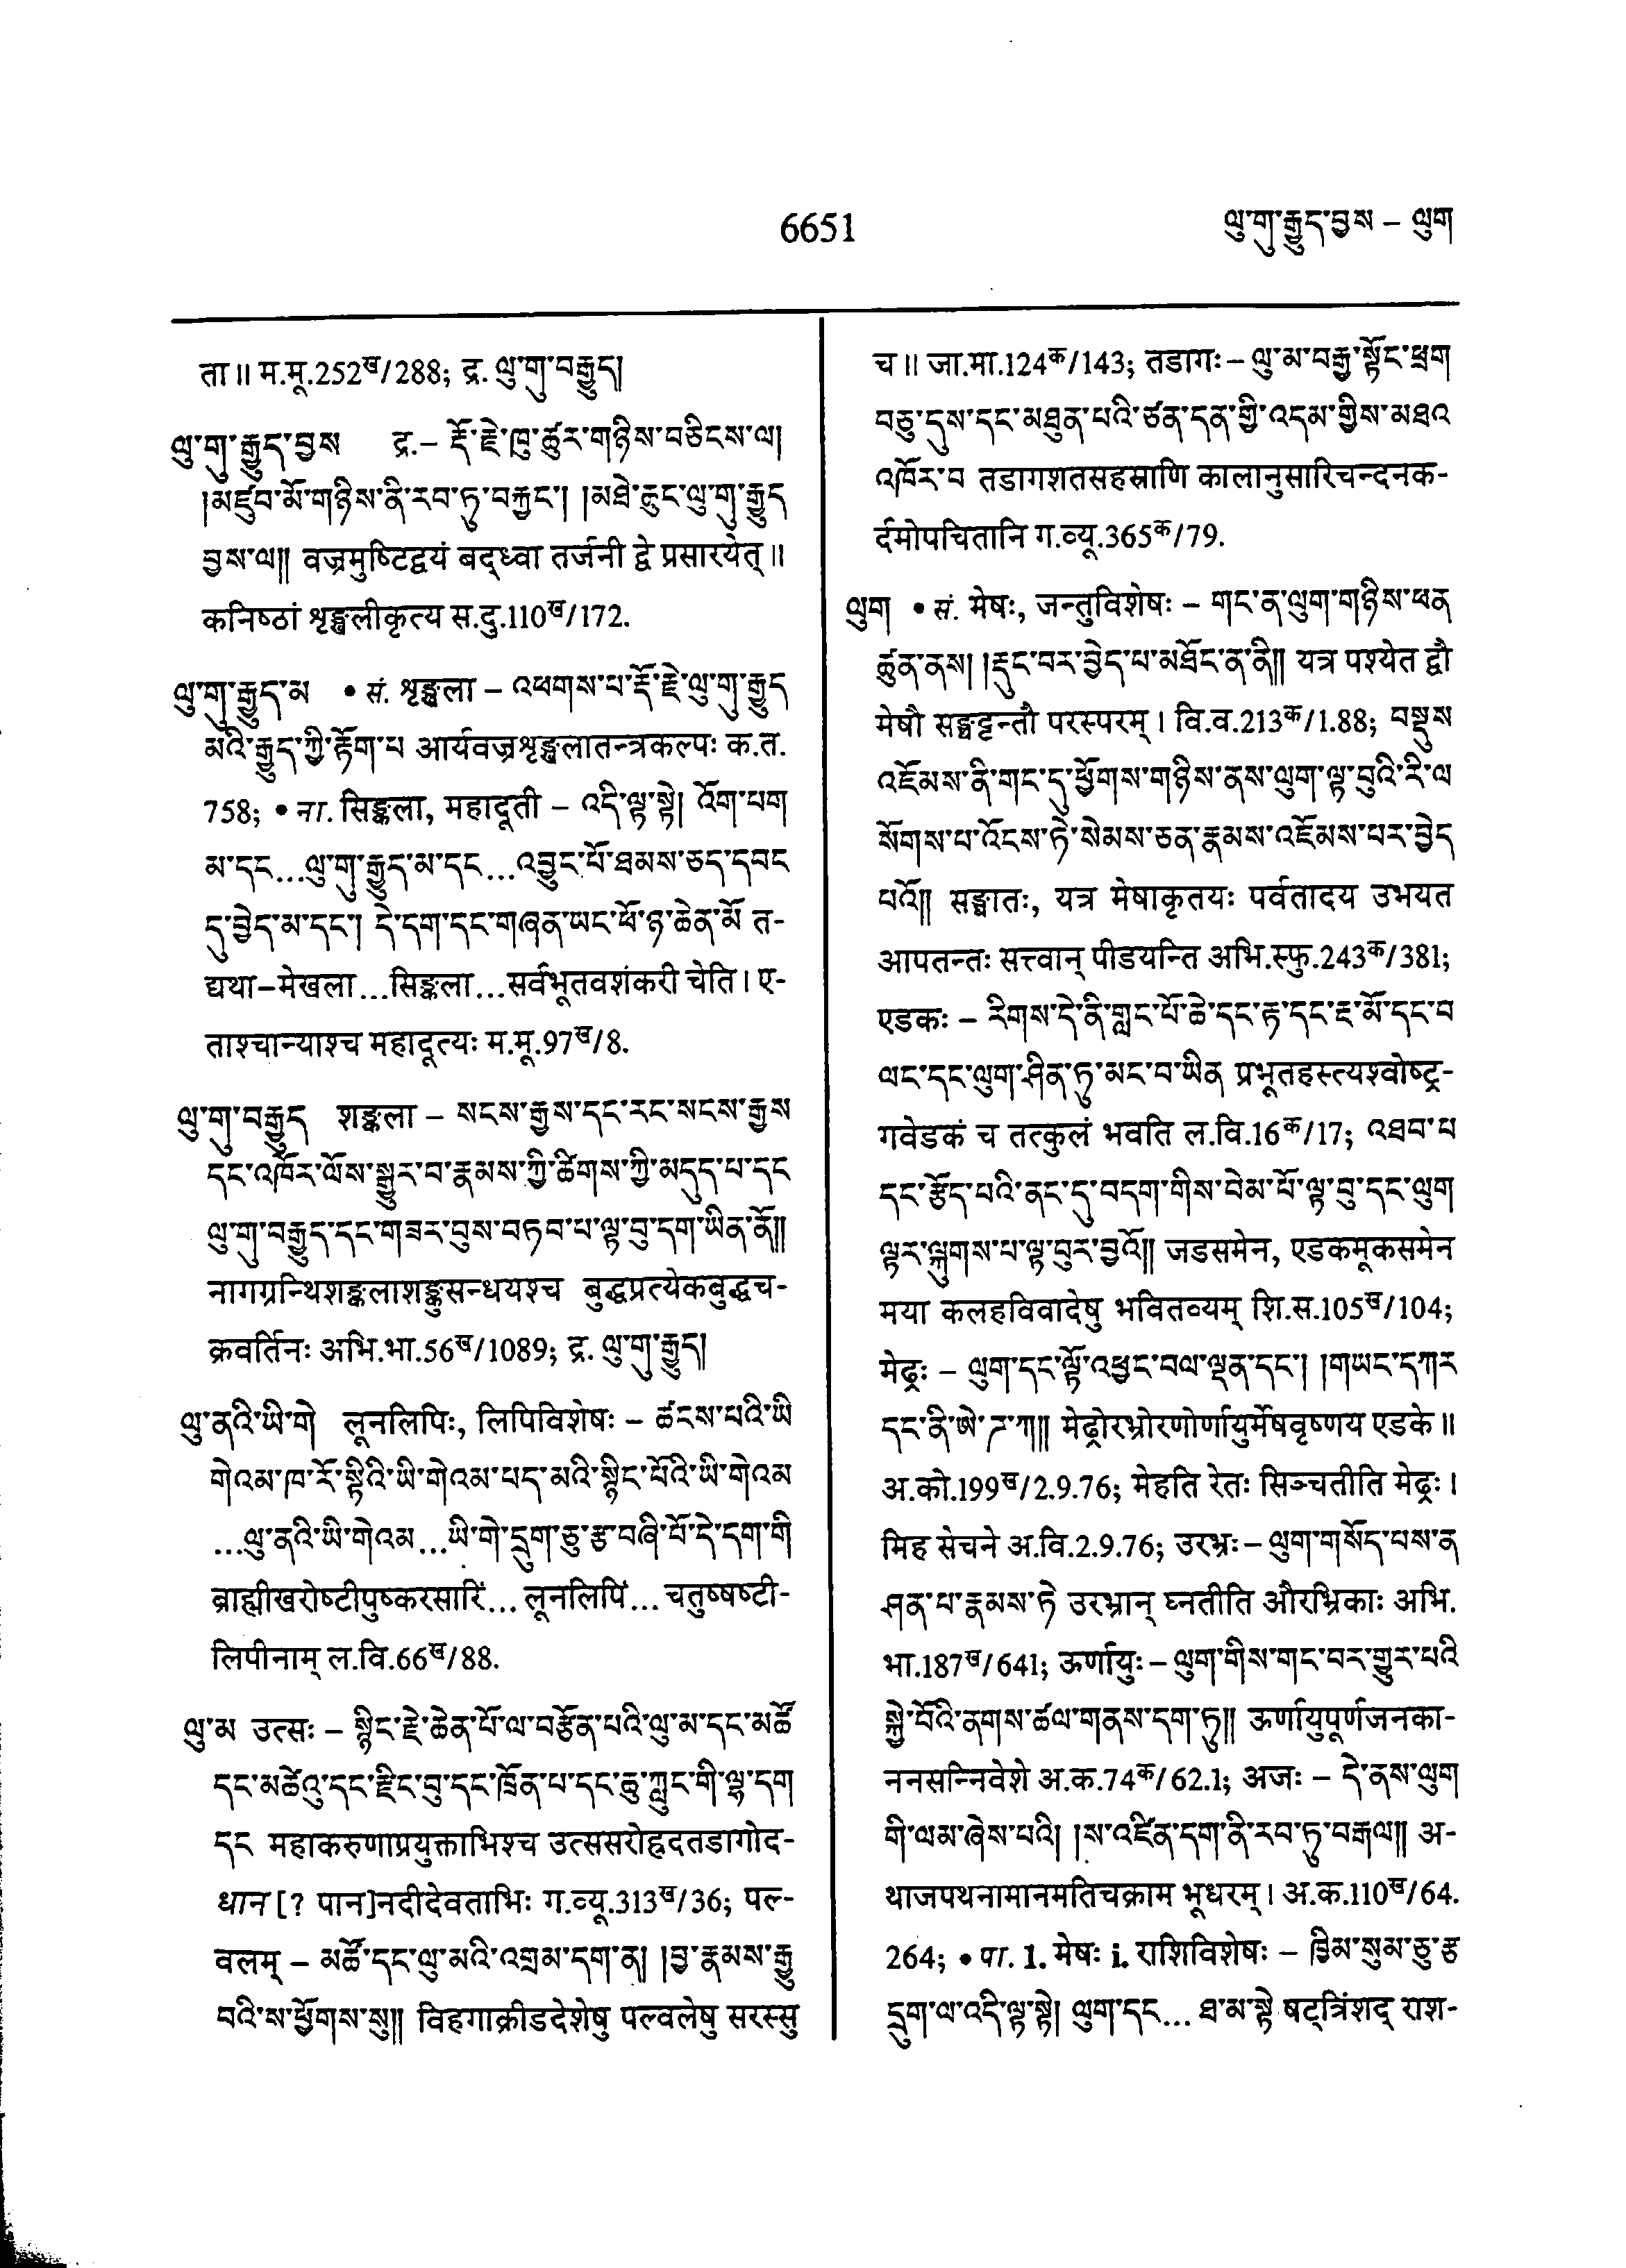 6651
ལུ་གུ་རྒྱུད་བྱས – ལུག
ता ॥ म.मू.252ख/288; द्र. ལུ་གུ་བརྒྱུད།
ལུ་གུ་རྒྱུད་བྱས द्र.– རྡོ་རྗེ་ཁུ་ཚུར་གཉིས་བཅིངས་ལ།
།མཛུབ་མོ་གཉིས་ནི་རབ་ཏུ་བརྐྱང་། །མཐེ་ཆུང་ལུ་གུ་རྒྱུད
བྱས་ལ།། वज्रमुष्टिद्वयं बद्ध्वा तर्जनी द्वे प्रसारयेत् ॥
कनिष्ठां शृङ्खलीकृत्य स.दु.110ख/172.
ལུ་གུ་རྒྱུད་མ • सं. शृङ्खला – འཕགས་པ་རྡོ་རྗེ་ལུ་གུ་རྒྱུད
མའི་རྒྱུད་ཀྱི་རྟོག་པ आर्यवज्रशृङ्खलातन्त्रकल्पः क.त.
758; • ना. सिङ्कला, महादूती – འདི་ལྟ་སྟེ། འོག་པག
མ་དང...ལུ་གུ་རྒྱུད་མ་དང...འབྱུང་པོ་ཐམས་ཅད་དབང
དུ་བྱེད་མ་དང་། དེ་དག་དང་གཞན་ཡང་ཕོ་ཉ་ཆེན་མོ त-
द्यथा–मेखला...सिङ्कला...सर्वभूतवशंकरी चेति । ए-
ताश्चान्याश्च महादूत्यः म.मू.97ख/8.
ལུ་གུ་བརྒྱུད शङ्कला – སངས་རྒྱས་དང་རང་སངས་རྒྱས
དང་འཁོར་ལོས་སྒྱུར་བ་རྣམས་ཀྱི་ཚིགས་ཀྱི་མདུད་པ་དང
ལུ་གུ་བརྒྱུད་དང་གཟར་བུས་བཏབ་པ་ལྟ་བུ་དག་ཡིན་ནོ།།
नागग्रन्थिशङ्कलाशङ्कुसन्धयश्च बुद्धप्रत्येकबुद्धच-
क्रवर्तिनः अभि.भा.56ख/1089; द्र. ལུ་གུ་རྒྱུད།
ལུ་ནའི་ཡི་གེ लूनलिपिः, लिपिविशेषः – ཚངས་པའི་ཡི
གེའམ་ཁ་རོ་སྟིའི་ཡི་གེའམ་པད་མའི་སྙིང་པོའི་ཡི་གེའམ
...ལུ་ནའི་ཡི་གེའམ...ཡི་གེ་དྲུག་ཅུ་རྩ་བཞི་པོ་དེ་དག་གི
ब्राह्मीखरोष्टीपुष्करसारिं... लूनलिपिं... चतुष्षष्टी-
लिपीनाम् ल.वि.66ख/88.
ལུ་མ उत्सः – སྙིང་རྗེ་ཆེན་པོ་ལ་བརྩོན་པའི་ལུ་མ་དང་མཚོ
དང་མཚེའུ་དང་རྫིང་བུ་དང་ཁྲོན་པ་དང་ཆུ་ཀླུང་གི་ལྷ་དག
དང महाकरुणाप्रयुक्ताभिश्च उत्ससरोह्रदतडागोद-
धान [? पान]नदीदेवताभिः ग.व्यू.313ख/36; पल्-
वलम् – མཚོ་དང་ལུ་མའི་འགྲམ་དག་ན། །བྱ་རྣམས་རྒྱུ
བའི་ས་ཕྱོགས་སུ།། विहगाक्रीडदेशेषु पल्वलेषु सरस्सु
च ॥ जा.मा.124क/143; तडागः – ལུ་མ་བརྒྱ་སྟོང་ཕྲག
བཅུ་དུས་དང་མཐུན་པའི་ཙན་དན་གྱི་འདམ་གྱིས་མཐའ
འཁོར་བ तडागशतसहस्राणि कालानुसारिचन्दनक-
र्दमोपचितानि ग.व्यू.365क/79.
ལུག • सं. मेषः, जन्तुविशेषः – གང་ན་ལུག་གཉིས་ཕན
ཚུན་ནས། །རྡུང་བར་བྱེད་པ་མཐོང་ན་ནི།། यत्र पश्येत द्वौ
मेषौ सङ्घट्टन्तौ परस्परम् । वि.व.213क/1.88; བསྡུས
འཇོམས་ནི་གང་དུ་ཕྱོགས་གཉིས་ནས་ལུག་ལྟ་བུའི་རི་ལ
སོགས་པ་འོངས་ཏེ་སེམས་ཅན་རྣམས་འཇོམས་པར་བྱེད
པའོ།། सङ्घातः, यत्र मेषाकृतयः पर्वतादय उभयत
आपतन्तः सत्त्वान् पीडयन्ति अभि.स्फु.243क/381;
एडकः – རིགས་དེ་ནི་གླང་པོ་ཆེ་དང་རྟ་དང་རྔ་མོ་དང་བ
ལང་དང་ལུག་ཤིན་ཏུ་མང་བ་ཡིན प्रभूतहस्त्यश्वोष्ट्र-
गवेडकं च तत्कुलं भवति ल.वि.16क/17; འཐབ་པ
དང་རྩོད་པའི་ནང་དུ་བདག་གིས་བེམ་པོ་ལྟ་བུ་དང་ལུག
ལྟར་ལྐུགས་པ་ལྟ་བུར་བྱའོ།། जडसमेन, एडकमूकसमेन
मया कलहविवादेषु भवितव्यम् शि.स.105ख/104;
मेढ्रः – ལུག་དང་ལྟོ་འཕྱང་བལ་ལྡན་དང་། །གཡང་དཀར
དང་ནི་ཨེ་ཌ་ཀ།། मेढ्रोरभ्रोरणोर्णायुर्मेषवृष्णय एडके ॥
अ.को.199ख/2.9.76; मेहति रेतः सिञ्चतीति मेढ्रः ।
मिह सेचने अ.वि.2.9.76; उरभ्रः – ལུག་གསོད་པས་ན
ཤན་པ་རྣམས་ཏེ उरभ्रान् घ्नतीति औरभ्रिकाः अभि.
भा.187ख/641; ऊर्णायुः – ལུག་གིས་གང་བར་གྱུར་པའི
སྐྱེ་བོའི་ནགས་ཚལ་གནས་དག་ཏུ།། ऊर्णायुपूर्णजनका-
ननसन्निवेशे अ.क.74क/62.1; अजः – དེ་ནས་ལུག
གི་ལམ་ཞེས་པའི། །ས་འཛིན་དག་ནི་རབ་ཏུ་བརྒལ།། अ-
थाजपथनामानमतिचक्राम भूधरम् । अ.क.110ख/64.
264; • पा. 1. मेषः i. राशिविशेषः – ཁྱིམ་སུམ་ཅུ་རྩ
དྲུག་ལ་འདི་ལྟ་སྟེ། ལུག་དང... ཐ་མ་སྟེ षट्त्रिंशद् राश-